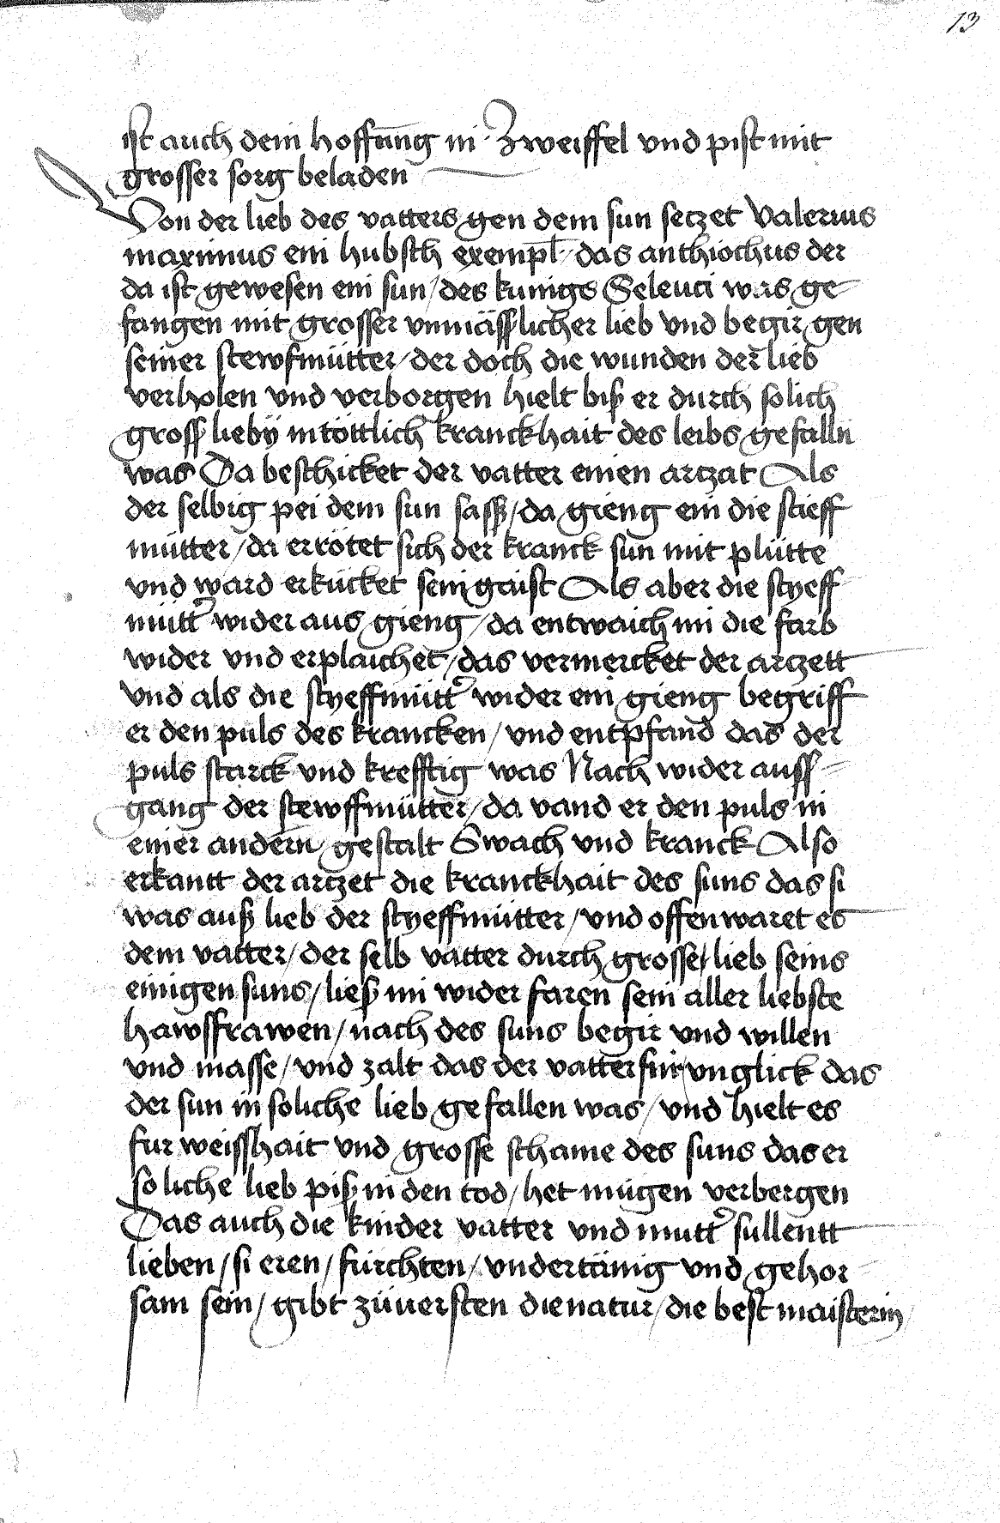 13
ist auch dein hoffnung in zweiffel vnd pist mit
grosser sorg beladen
Von der lieb des vatters gen dem sun seczet Valerius
maximus ein hubsch exempl / das anthiochus der
da ist gewesen ein sun / des kunigs Seleuci was ge
fangen mit grosser vnmässlicher lieb vnd begir gen
seiner stewfmütter / der doch die wunden der lieb
verholen vnd verborgen hielt biß er durch solich
gross lieby in töttlich kranckhait des leibs gefalln
was Da beschicket der vatter einen arczat Als
der selbig pei dem sun sass / da gieng ein die stieff
mütter / da errötet sich der kranck sun mit plütte
vnd ward erkücket sein gaist Als aber die styeff
mütt' wider aus gieng / da entwaich im die farb
wider vnd erplaichet / das vermercket der arczett
vnd als die styeffmütt' wider ein gieng begriff
er den puls des krancken / vnd entpfand das der
puls starck vnd krefftig was Nach wider auss
gang der stewffmütter / da vand er den puls in
einer andern gestalt Swach vnd kranck Also
erkantt der arczet die kranckhait des suns das si
was auß lieb der styeffmütter / vnd offenwaret es
dem vatter / der selb vatter durch grosse lieb seins
einigen suns / ließ im wider faren sein aller liebste
hawsfrawen / nach des suns begir vnd willen
vnd masse / vnd zalt das der vatter für vnglick das
der sun in soliche lieb gefallen was / vnd hielt es
fur weisshait vnd grosse schame des suns das er
soliche lieb piß in den tod / het mügen verbergen
Das auch die kinder vatter vnd mutt' sullentt
lieben / si eren / fürchten / vndertänig vnd gehor
sam sein / gibt züuersten die natur / die best maisterin